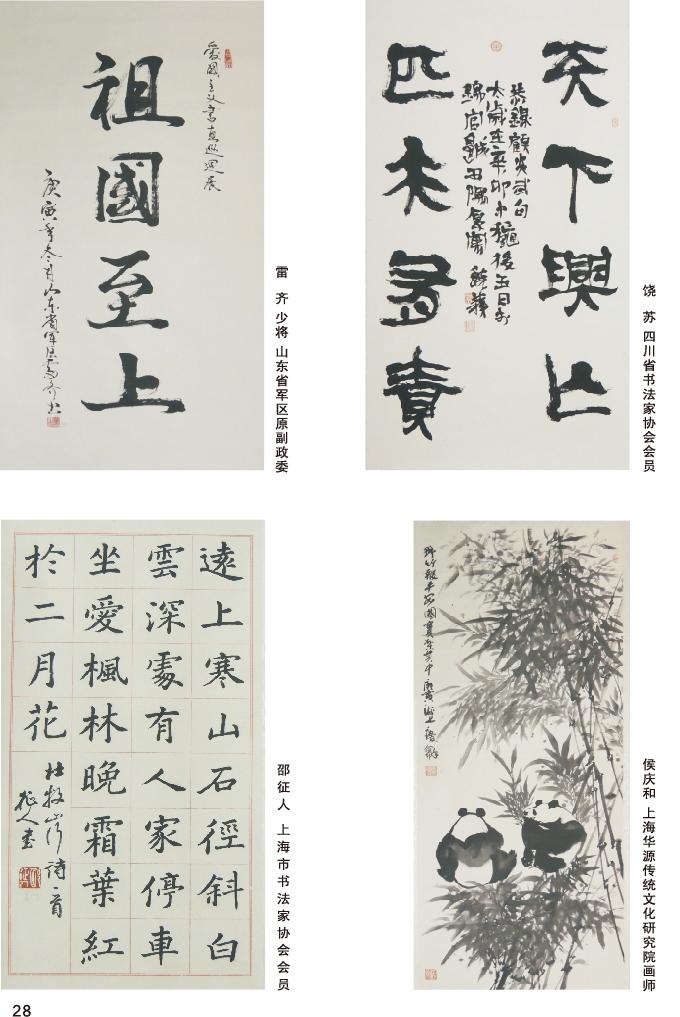 愛國主义書画巡迴展
祖國至上
庚寅年冬月山东省軍区雷齐书
雷 齐 少将 山东省军区原副政委
天下興亡
匹夫有責
恭錄顧炎武句
太歲在辛卯
饶 苏 四川省书法家协会会员
遠上寒山石徑斜白
雲深處有人家停車
坐愛楓林晚霜葉紅
於二月花
杜牧山行詩一首
征人書
邵征人 上海市书法家协会会员
侯庆和 上海华源传统文化研究院画师
28